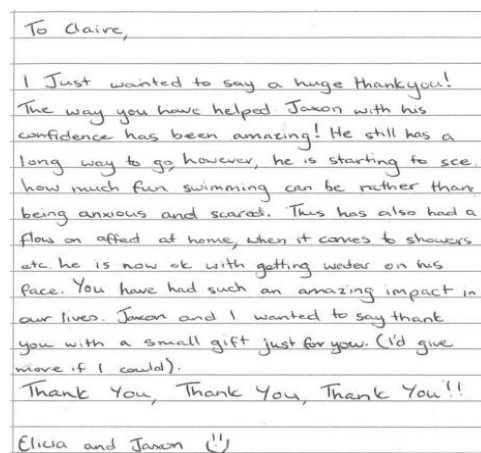 To Claire,
I Just wanted to say a huge thankyou!
The way you have helped Jaxon with his
confidence has been amazing! He still has a
long way to go, however, he is starting to see
how much fun swimming can be rather than
being anxious and scared. This has also had a
flow on affect at home, when it comes to showers
etc. he is now ok with getting water on his
face. You have had such an amazing impact in
our lives. Jaxon and I wanted to say thank
you with a small gift just for you. (I'd give
more if I could).
Thank You, Thank You, Thank You!!
Elicia and Jaxon